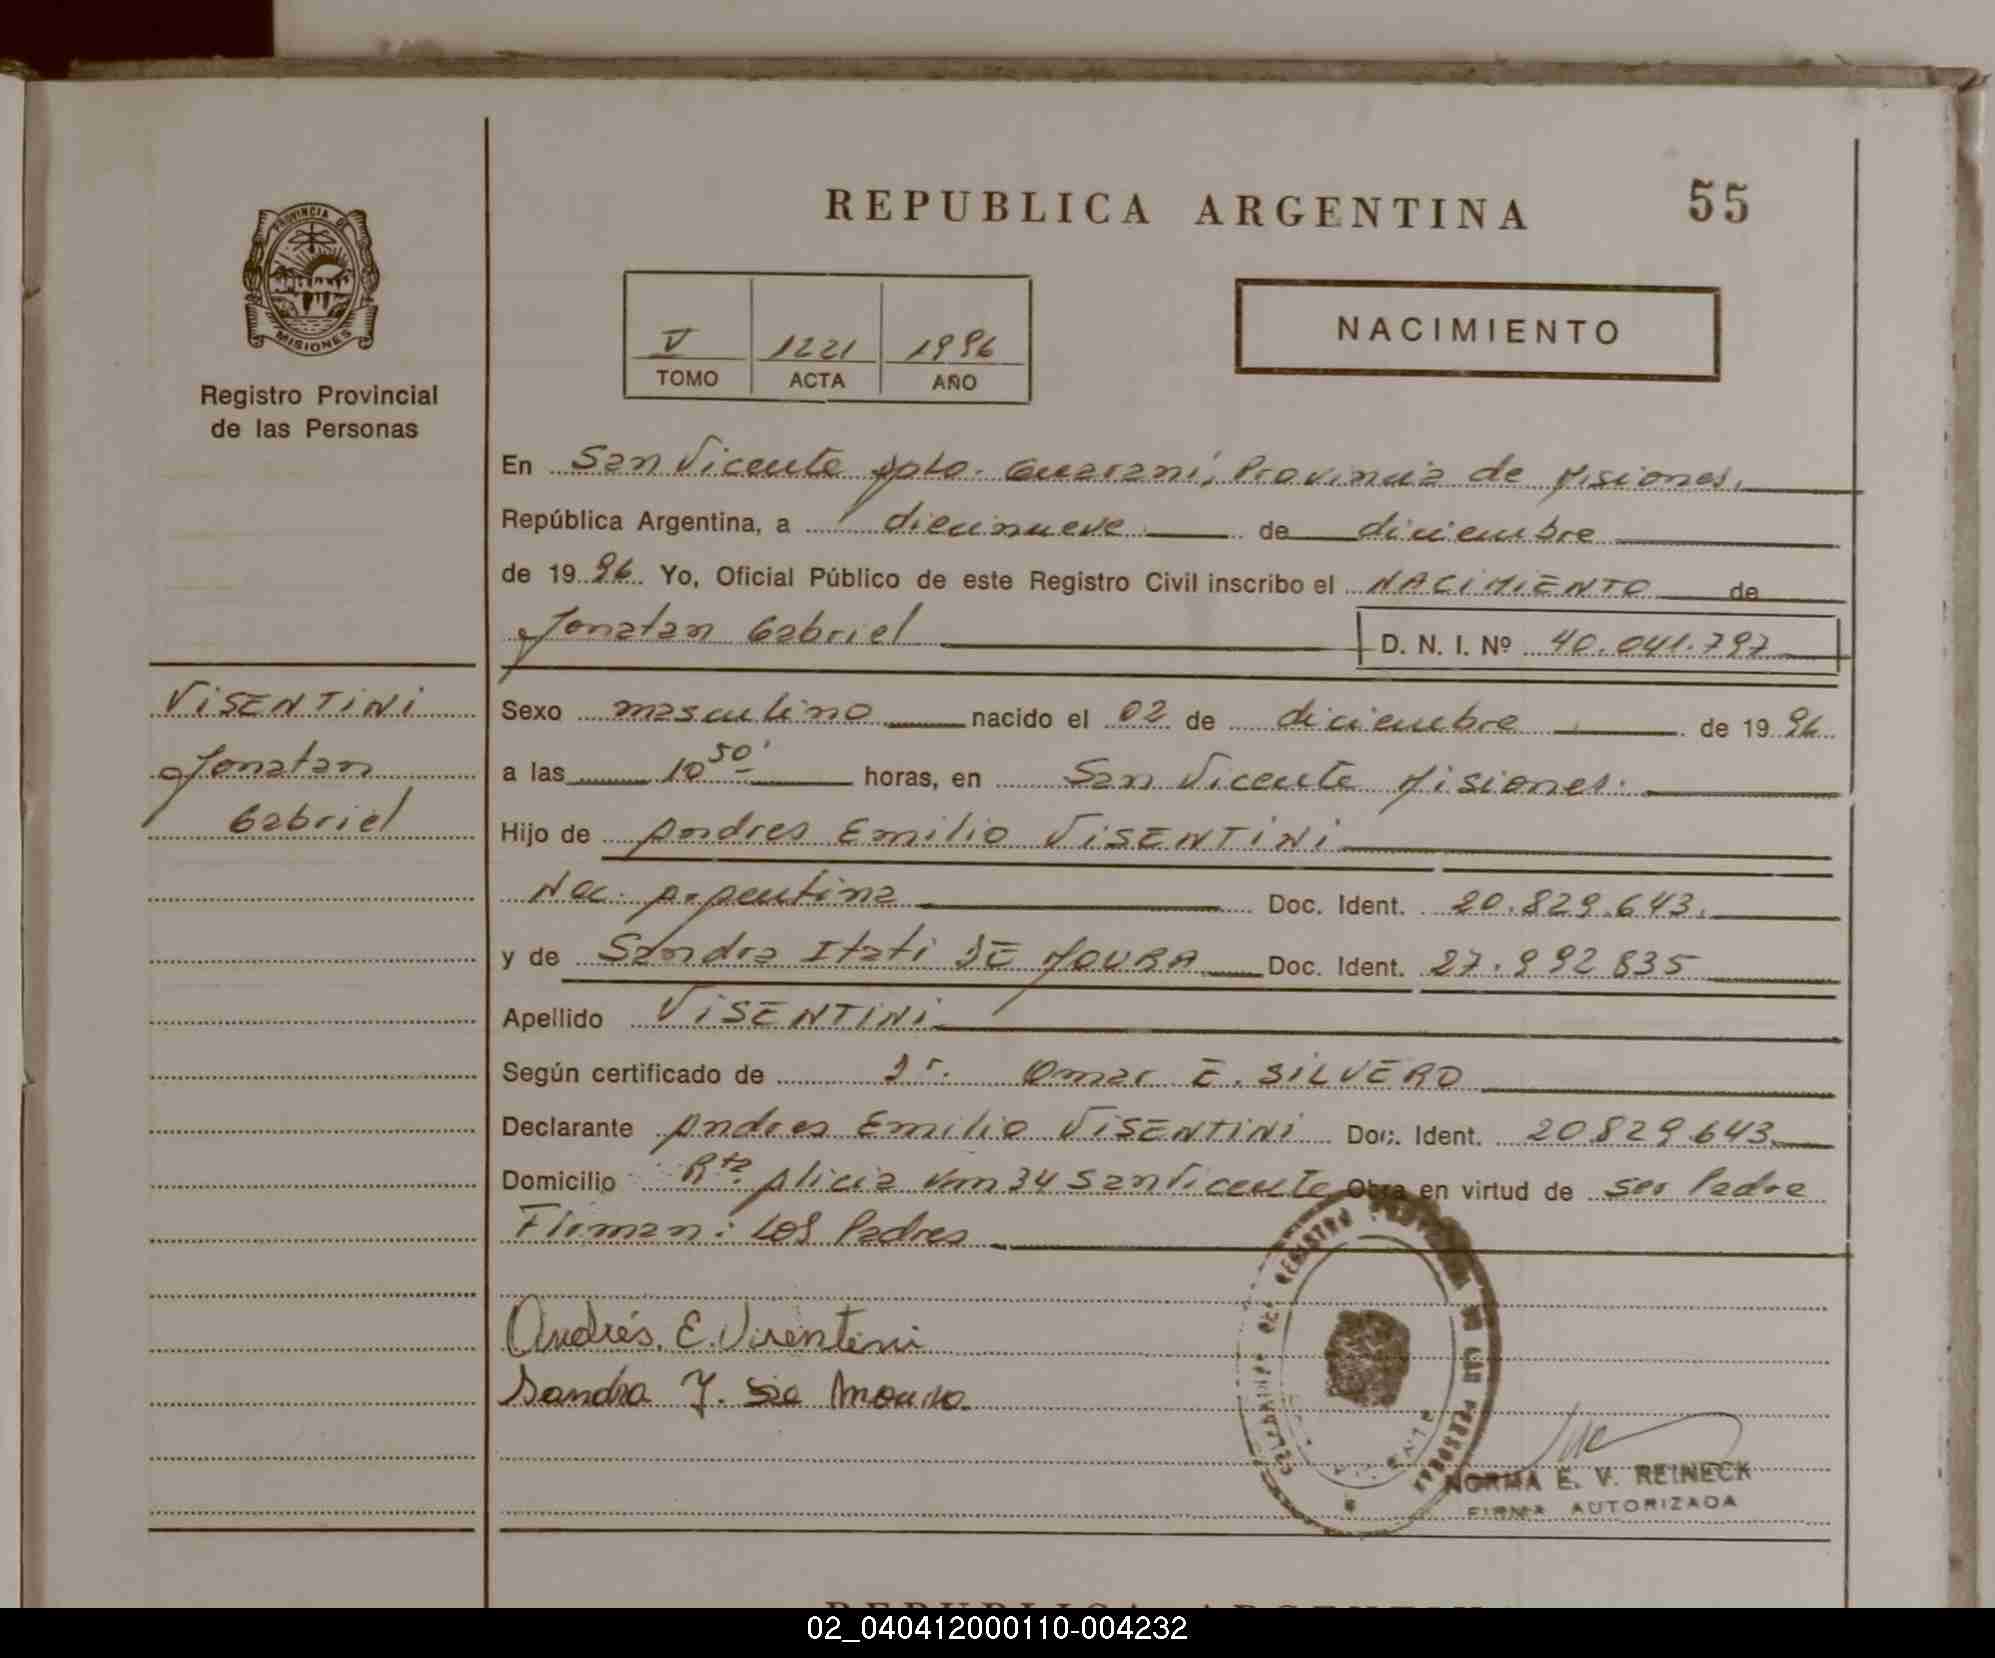 REPUBLICA ARGENTINA 55
PROVINCIA DE
MISIONES
Registro Provincial
de las Personas
V 1221 1996
TOMO ACTA AÑO
NACIMIENTO
En San Vicente Dpto. Guaraní, Provincia de Misiones,
República Argentina, a diecinueve de diciembre
de 1996 Yo, Oficial Público de este Registro Civil inscribo el NACIMIENTO de
Jonatan Gabriel D. N. I. Nº 40.041.797
VISENTINI
Jonatan
Gabriel
Sexo masculino nacido el 02 de diciembre de 1996
a las 10 50' horas, en San Vicente Misiones.
Hijo de Andres Emilio VISENTINI
Nac. Argentina Doc. Ident. 20.829.643.
y de Sandra Itati DE MOURA Doc. Ident. 27.992835
Apellido VISENTINI
Según certificado de Dr. Omar E. SILVERO
Declarante Andres Emilio VISENTINI Doc. Ident. 20829643
Domicilio Rta. Alicia Km 34 San Vicente Obra en virtud de ser Padre
Firman: Los Padres
Andrés. E. Visentini
Sandra I. De Moura.
REGISTRO PROVINCIAL DE LAS PERSONAS
NORMA E. V. REINECK
FIRMA AUTORIZADA
REPUBLICA ARGENTINA
02_040412000110-004232